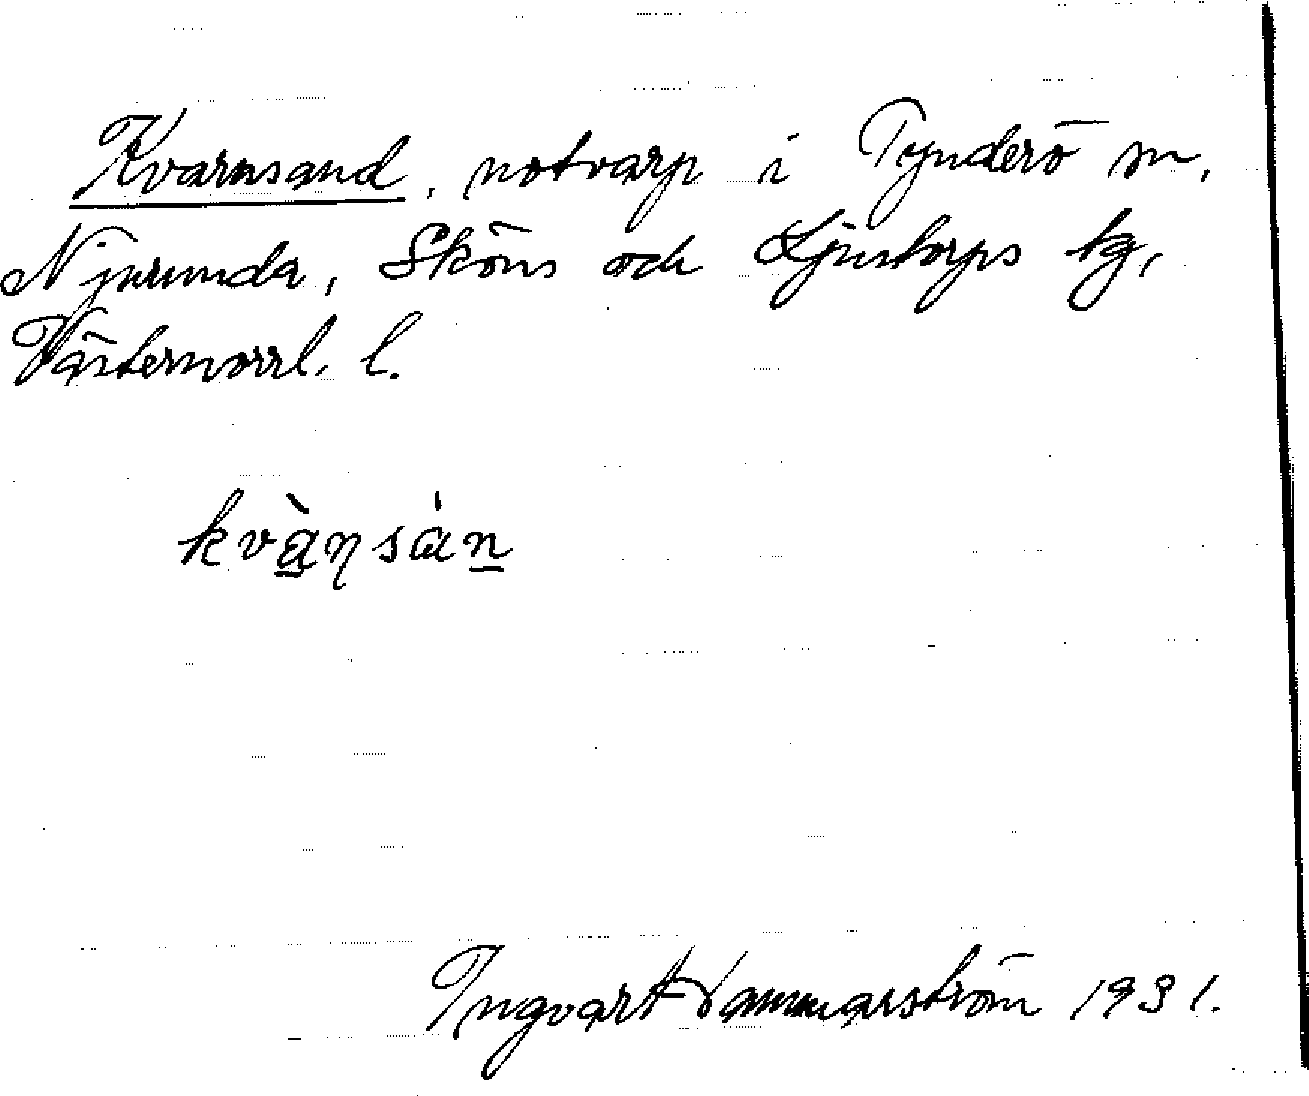 Kvarnsand, notvarp i Tynderö sn,
Njurunda, Sköns och Ljustorps tg,
Västernorrl. l.
kvànsán
Ingvart Hammarström 1931.